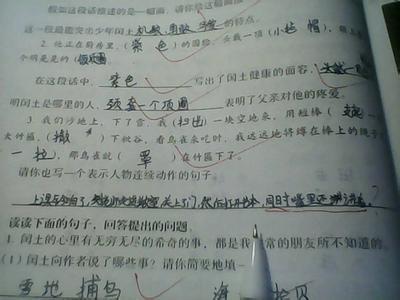 假如这段话描述的是一幅画，请你给这幅画
这一段最能突出少年闰土机敏、勇敢、的特点。
2. 他正在厨房里，（紫色）的圆脸，头戴一顶（小毡帽），颈上
个明晃晃的（银项圈
在这段话中，紫色写出了闰土健康的面容，头戴一
明闰土是哪里的人，颈套一个项圈表明了父亲对他的疼爱。
3. 我们沙地上，下了雪，我（扫出）一块空地来，用短棒（支起）一
大竹匾，（撒）下秕谷，看鸟雀来吃时，我远远地将缚在棒上的绳子
一拉，那鸟雀就（罩）在竹匾下了。
请你也写一个表示人物连续动作的句子。
上课铃响了，关上了门，然后打开书本，同时嘴里还
读读下面的句子，回答提出的问题。
1. 闰土的心里有无穷无尽的希奇的事，都是我常的朋友所不知道的。
（1）闰土向作者说了哪些事？请你简要地填一
雪地捕鸟 海拾贝